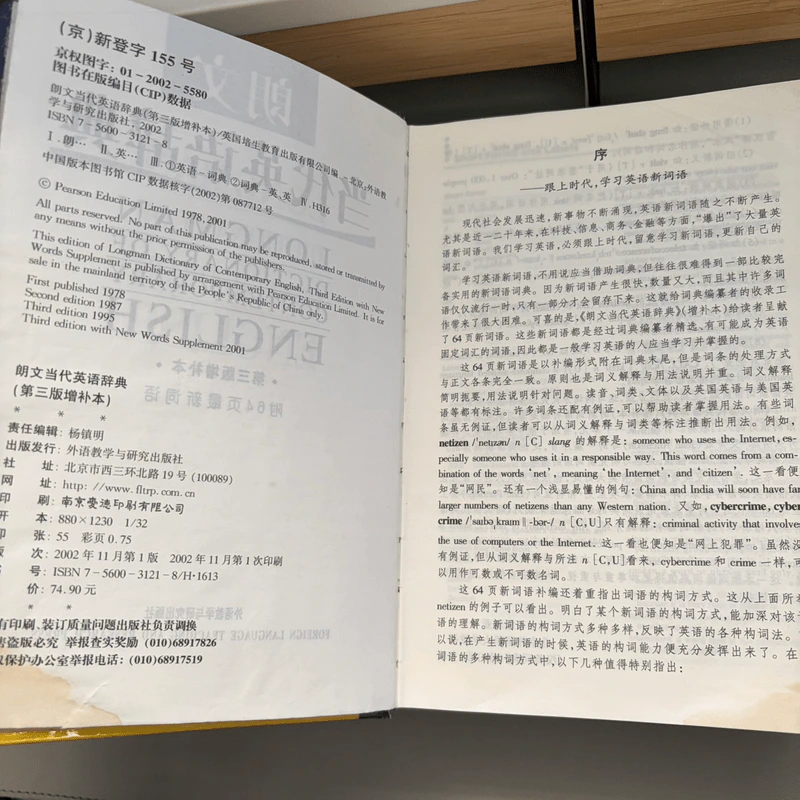 (京)新登字 155 号
京权图字：01-2002-5580
图书在版编目(CIP)数据
朗文当代英语辞典(第三版增补本)/英国培生教育出版有限公司编.—北京:外语教
学与研究出版社，2002
ISBN 7-5600-3121-8
Ⅰ.朗… Ⅱ.英… Ⅲ.①英语-词典②词典-英、英 Ⅳ.H316
中国版本图书馆 CIP 数据核字(2002)第 087712 号
© Pearson Education Limited 1978, 2001
All rights reserved. No part of this publication may be reproduced, stored or transmitted by
any means without the prior permission of the publishers.
This edition of Longman Dictionary of Contemporary English, Third Edition with New
Words Supplement is published by arrangement with Pearson Education Limited. It is for
sale in the mainland territory of the People's Republic of China only.
First published 1978
Second edition 1987
Third edition 1995
Third edition with New Words Supplement 2001
朗文当代英语辞典
(第三版增补本)
* * *
责任编辑：杨镇明
出版发行：外语教学与研究出版社
社 址：北京市西三环北路 19 号 (100089)
网 址：http://www.fltrp.com.cn
印 刷：南京爱德印刷有限公司
开 本：880×1230 1/32
印 张：55 彩页 0.75
版 次：2002 年 11 月第 1 版 2002 年 11 月第 1 次印刷
号：ISBN 7-5600-3121-8/H·1613
价：74.90 元
* * *
有印刷、装订质量问题出版社负责调换
害盗版必究 举报查实奖励 (010)68917826
权保护办公室举报电话：(010)68917519
序
——跟上时代，学习英语新词语
现代社会发展迅速，新事物不断涌现，英语新词语随之不断产生。
尤其是近一二十年来，在科技、信息、商务、金融等方面，“爆出”了大量英
语新词语。我们学习英语，必须跟上时代，留意学习新词语，更新自己的
词汇。
学习英语新词语，不用说应当借助词典，但往往很难得到一部比较完
备实用的新词语词典。因为新词语产生很快，数量又大，而且其中许多词
语仅仅流行一时，只有一部分才会留存下来。这就给词典编纂者的收录工
作带来了很大困难。可喜的是，《朗文当代英语辞典》(增补本)给读者呈献
了 64 页新词语。这些新词语都是经过词典编纂者精选、有可能成为英语
固定词汇的词语，因此都是一般学习英语的人应当学习并掌握的。
这 64 页新词语是以补编形式附在词典末尾，但是词条的处理方式
与正文各条完全一致。原则也是词义解释与用法说明并重。词义解释
简明扼要，用法说明针对问题。读音、词类、文体以及英国英语与美国英
语等都有标注。许多词条还配有例证，可以帮助读者掌握用法。有些词
条虽无例证，但读者可以从词义解释与词类等标注推断出用法。例如，
netizen /ˈnetɪzən/ n [C] slang 的解释是：someone who uses the Internet, es-
pecially someone who uses it in a responsible way. This word comes from a com-
bination of the words 'net', meaning 'the Internet', and 'citizen'. 这一看便
知是“网民”。还有一个浅显易懂的例句：China and India will soon have far
larger numbers of netizens than any Western nation. 又如，cybercrime, cyber
crime /ˈsaɪbəˌkraɪm‖-bər-/ n [C,U]只有解释：criminal activity that involves
the use of computers or the Internet. 这一看也便知是“网上犯罪”。虽然没
有例证，但从词义解释与所注 n [C,U]看来，cybercrime 和 crime 一样，可
以用作可数或不可数名词。
这 64 页新词语补编还着重指出词语的构词方式。这从上面所举
netizen 的例子可以看出。明白了某个新词语的构词方式，能加深对该词
语的理解。新词语的构词方式多种多样，反映了英语的各种构词法。
以说，在产生新词语的时候，英语的构词能力便充分发挥出来了。在
词语的多种构词方式中，以下几种值得特别指出：